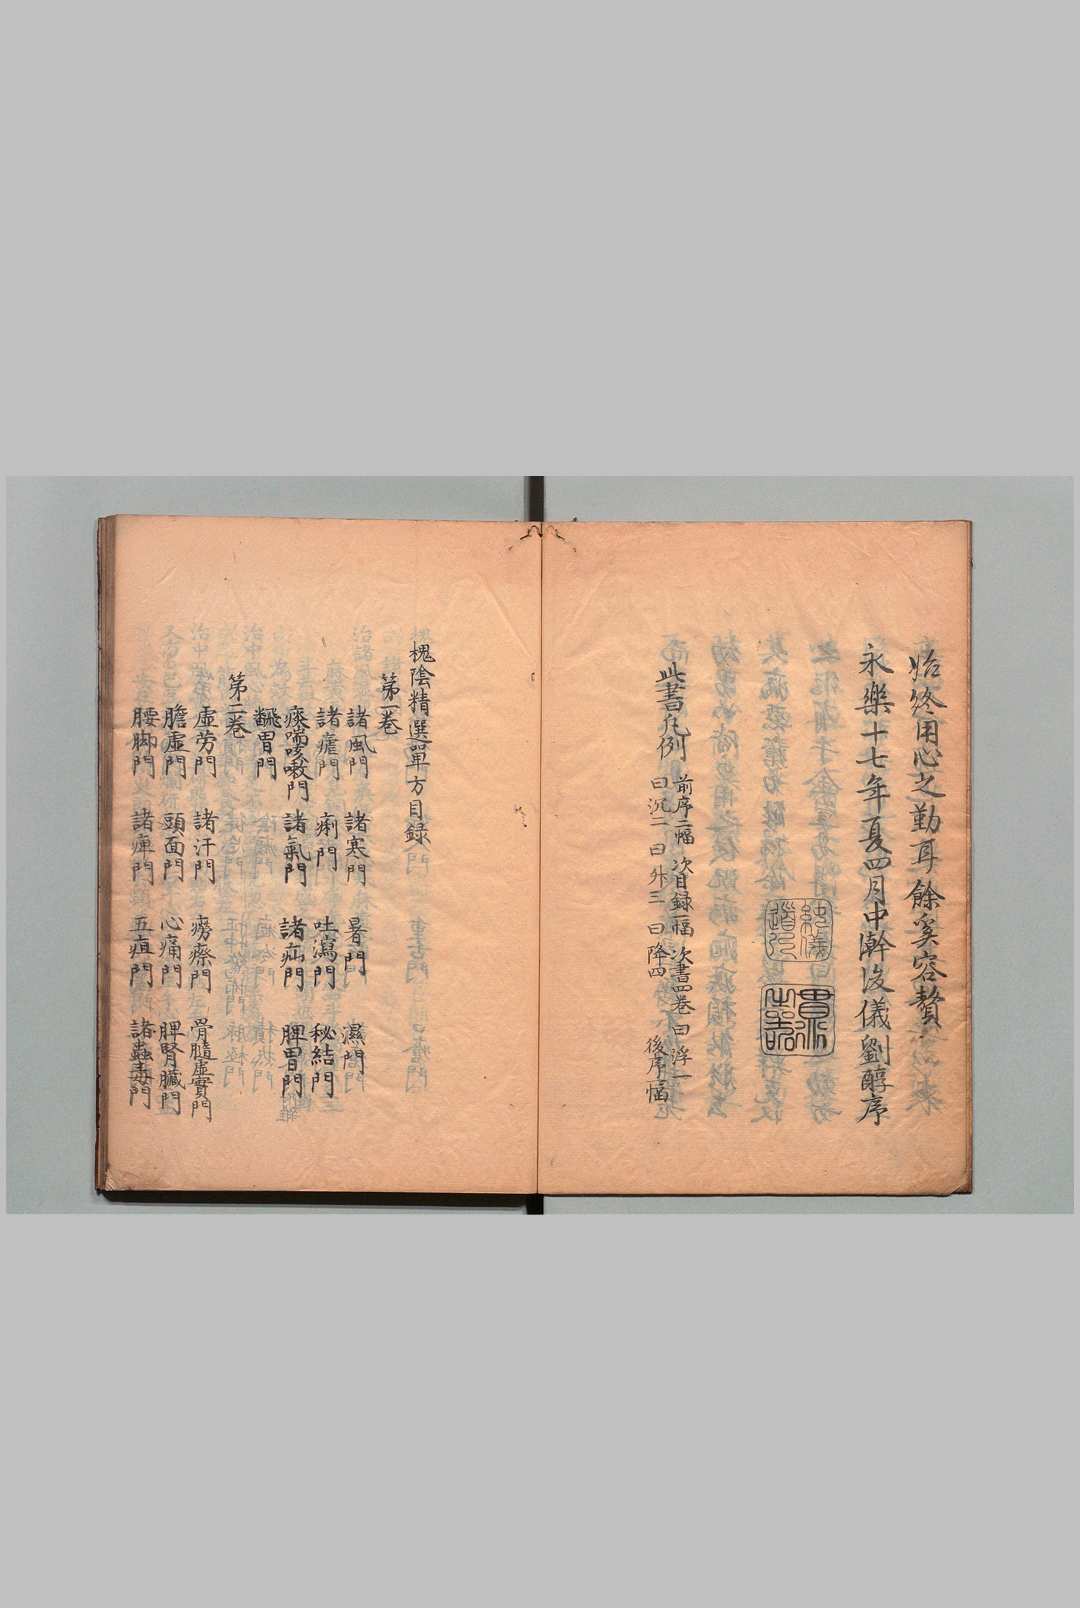 始終用心之勤耳餘奚容贅
永樂十七年夏四月中澣後儀劉醇序
此書凡例
前序二幅 次目録一幅 次書四卷 曰浮一
曰沉二 曰外三 曰降四 後序幅
槐陰精選單方目録
第一卷
諸風門 諸寒門 暑門 濕門
諸瘧門 痢門 吐瀉門 秘結門
痰喘咳嗽門 諸氣門 諸疝門 脾胃門
翻胃門
第二卷
虚勞門 諸汗門 癆瘵門 骨髓虚實門
膽虚門 頭面門 心痛門 脾腎臓門
腰脚門 諸痺門 五疸門 諸蟲毒門